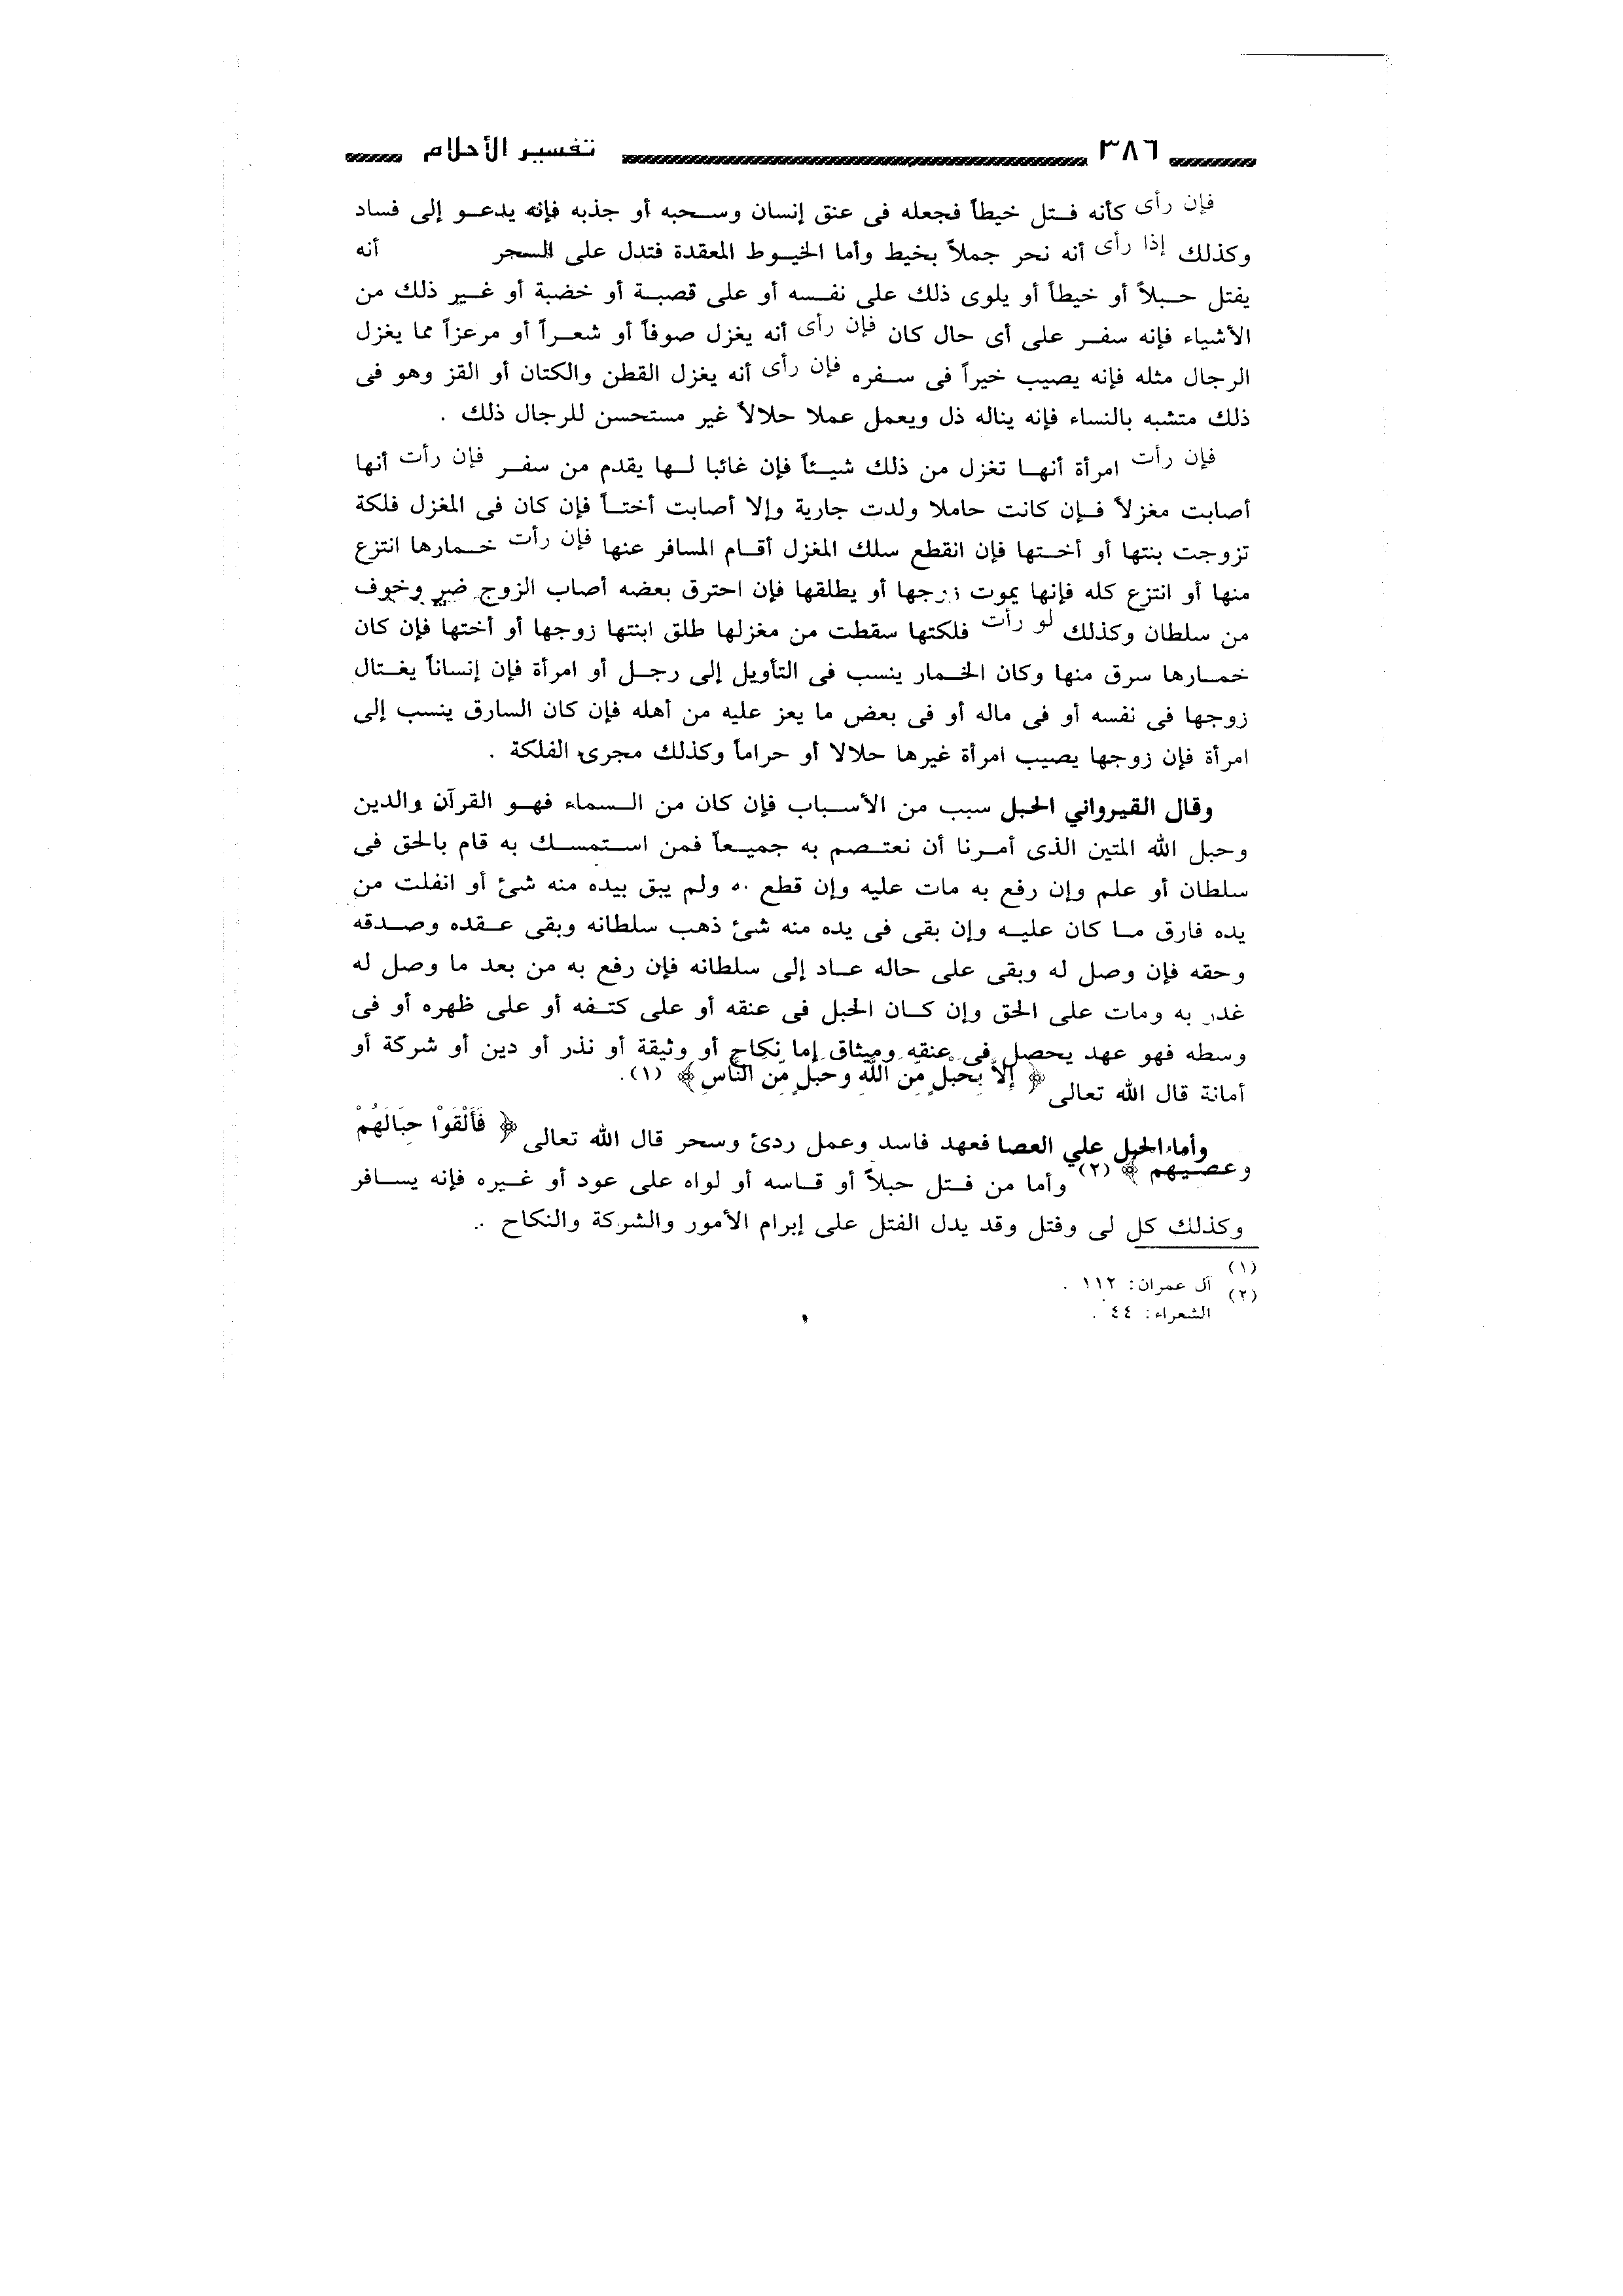 ٣٨٦ تفسير الأحلام
فإن رأى كأنه فتل خيطاً فجعله فى عنق إنسان وسحبه أو جذبه فإنه يدعو إلى فساد
وكذلك إذا رأى أنه نحر جملاً بخيط وأما الخيوط المعقدة فتدل على السحر أنه
يفتل حبلاً أو خيطاً أو يلوى ذلك على نفسه أو على قصبة أو خضبة أو غير ذلك من
الأشياء فإنه سفر على أى حال كان فإن رأى أنه يغزل صوفاً أو شعراً أو مرعزاً مما يغزل
الرجال مثله فإنه يصيب خيراً فى سفره فإن رأى أنه يغزل القطن والكتان أو القز وهو فى
ذلك متشبه بالنساء فإنه يناله ذل ويعمل عملا حلالاً غير مستحسن للرجال ذلك .
فإن رأت امرأة أنها تغزل من ذلك شيئاً فإن غائبا لها يقدم من سفر فإن رأت أنها
أصابت مغزلاً فإن كانت حاملا ولدت جارية وإلا أصابت أختاً فإن كان فى المغزل فلكة
تزوجت بنتها أو أختها فإن انقطع سلك المغزل أقام المسافر عنها فإن رأت خمارها انتزع
منها أو انتزع كله فإنها يموت زوجها أو يطلقها فإن احترق بعضه أصاب الزوج ضر وخوف
من سلطان وكذلك لو رأت فلكتها سقطت من مغزلها طلق ابنتها زوجها أو أختها فإن كان
خمارها سرق منها وكان الخمار ينسب فى التأويل إلى رجل أو امرأة فإن إنساناً يغتال
زوجها فى نفسه أو فى ماله أو فى بعض ما يعز عليه من أهله فإن كان السارق ينسب إلى
امرأة فإن زوجها يصيب امرأة غيرها حلالا أو حراماً وكذلك مجرى الفلكة .
وقال القيرواني الحبل سبب من الأسباب فإن كان من السماء فهو القرآن والدين
وحبل الله المتين الذى أمرنا أن نعتصم به جميعاً فمن استمسك به قام بالحق فى
سلطان أو علم وإن رفع به مات عليه وإن قطع ولم يبق بيده منه شئ أو انفلت من
يده فارق ما كان عليه وإن بقى فى يده منه شئ ذهب سلطانه وبقى عقده وصدقه
وحقه فإن وصل له وبقى على حاله عاد إلى سلطانه فإن رفع به من بعد ما وصل له
غدر به ومات على الحق وإن كان الحبل فى عنقه أو على كتفه أو على ظهره أو فى
وسطه فهو عهد يحصل فى عنقه وميثاق إما نكاح أو وثيقة أو نذر أو دين أو شركة أو
أمانة قال الله تعالى ﴿ إلاَّ بِحَبْلٍ مِّنَ اللَّهِ وَحَبْلٍ مِّنَ النَّاسِ ﴾ (١).
وأما الحبل علي العصا فعهد فاسد وعمل ردئ وسحر قال الله تعالى ﴿ فَأَلْقَوْا حِبَالَهُمْ
وعصيهم ﴾ (٢) وأما من فتل حبلاً أو قاسه أو لواه على عود أو غيره فإنه يسافر
وكذلك كل لى وفتل وقد يدل الفتل على إبرام الأمور والشركة والنكاح .
(١) آل عمران: ١١٢ .
(٢) الشعراء: ٤٤ .